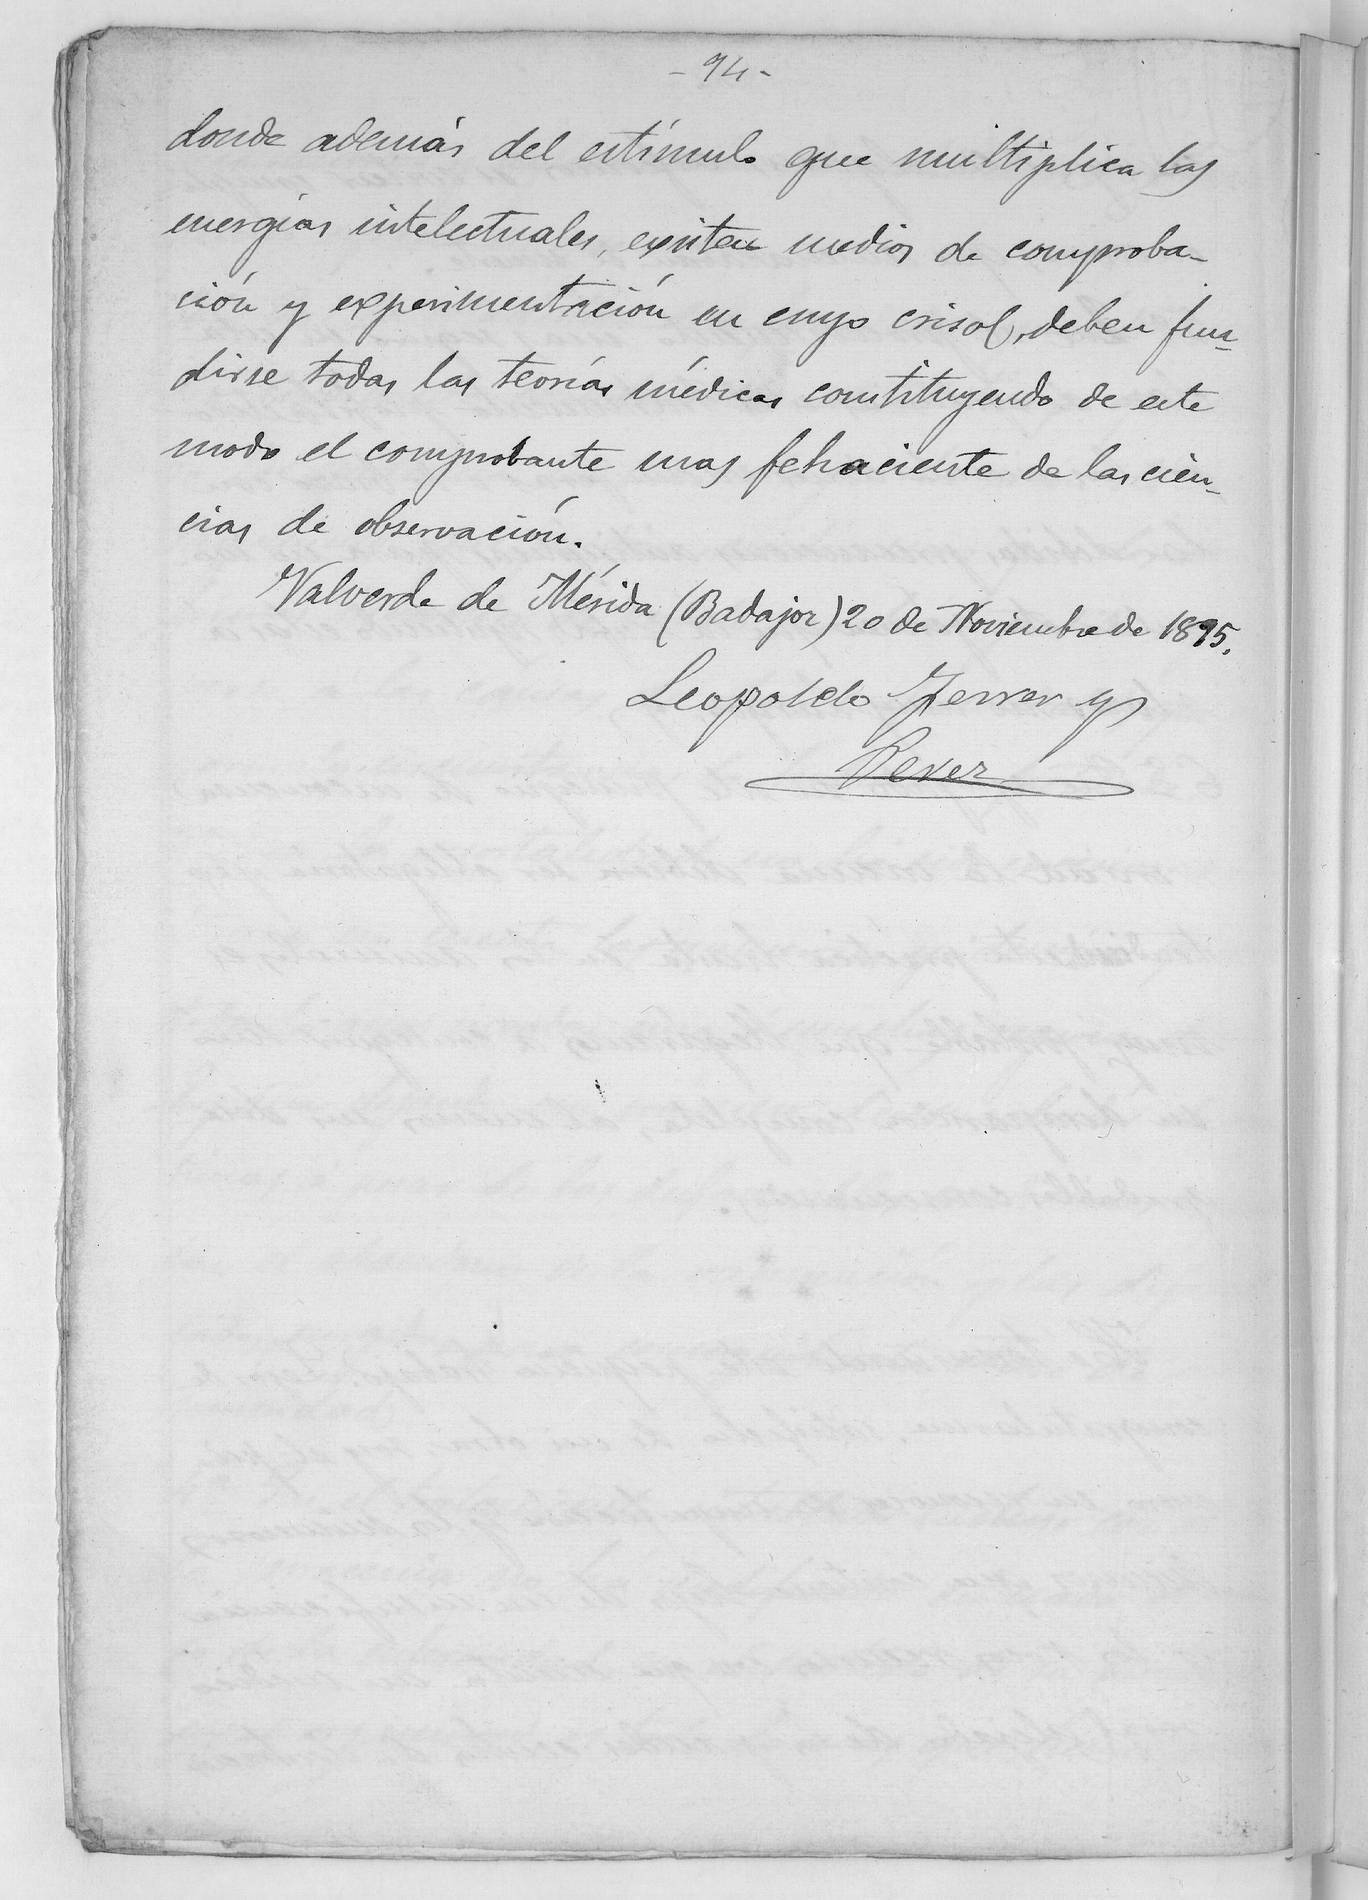 - 94 -
donde además del estímulo que multiplica las
energías intelectuales, existen medios de comproba-
ción y experimentación en cuyo crisol, deben fun-
dirse todas las teorías médicas constituyendo de este
modo el comprobante mas fehaciente de las cien-
cias de observación.
Valverde de Mérida (Badajoz) 20 de Noviembre de 1895.
Leopoldo Ferrer y